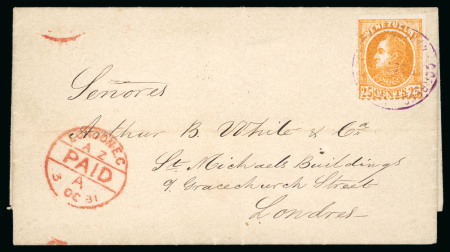 VENEZUELA
25 CENTS 25
Señores
Arthur B. White & Cª
St. Michaels Buildings
9. Gracechurch Street
Londres
LONDON E.C
A Z
PAID
A
3 OC 81